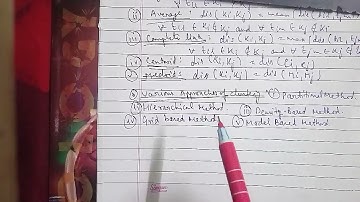 (ii) Average: dis (Ki, Kj) = mean (dis (tip, tjq))
∀ tip ∈ Ki & ∀ tjq ∈ Kj & Ki
(iii) Complete link: dis (Ki, Kj) = max (dis
∀ tip ∈ Ki and ∀ tjq ∈ Kj
(iv) Centroid: dis (Ki, Kj) = dis (Ci, Cj)
(v) medoid: dis (Ki, Kj) = dis (Mi, Mj)
Various Approaches of clustering (i) Partitional Method
(ii) Hierarchical Method (iii) Density-Based Method
(iv) Grid based Method (v) Model Based Method